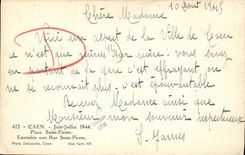 10 Août 1945
Chère Madame
Voici un aspect de la Ville de Caen
ce n'est que ruine sur ruine. Vous savez
en sortant de la gare c'est effrayant on
ne se reconnait plus, c'est épouvantable
Recevez Madame ainsi que
Monsieur mon souvenir respectueux
422 - CAEN. - Juin-Juillet 1944
Place Saint-Pierre.
Ensemble vers Rue Saint-Pierre.
Photo Delassalle, Caen
Visa Paris